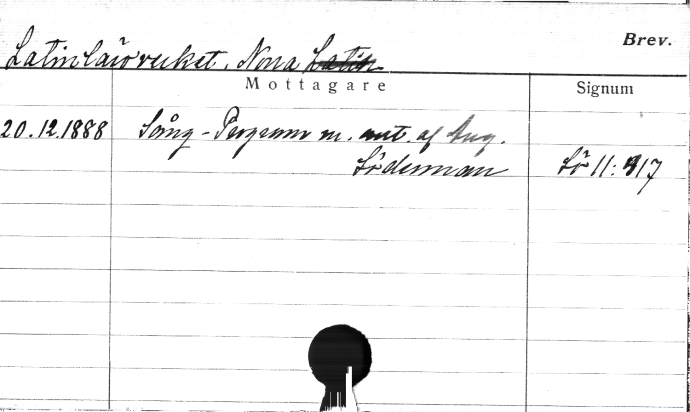 Brev.
Latinläroverket, Norra Latin
Mottagare Signum
20.12.1888 Sång-Program m. ant. af Aug.
Söderman Sö 11:317